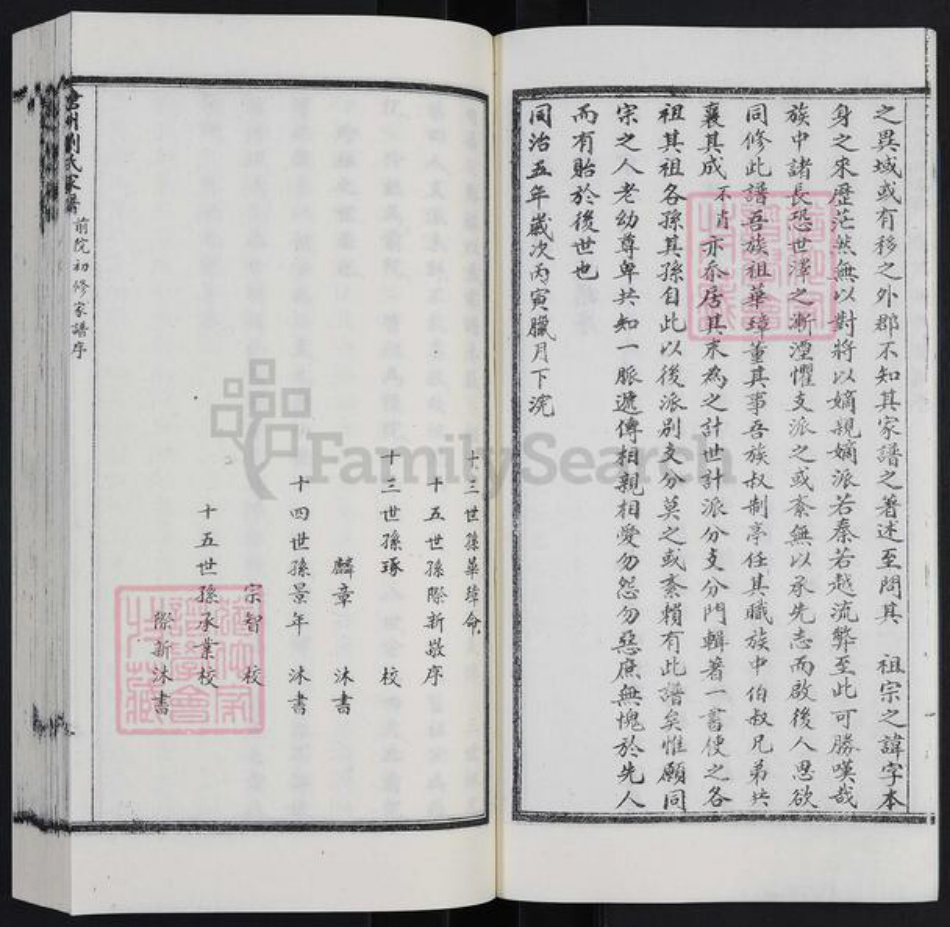 之異域或有移之外郡不知其家譜之著述至問其 祖宗之諱字本
身之來歷茫然無以對將以嫡親嫡派若秦若越流弊至此可勝嘆哉
族中諸長恐世澤之漸湮懼支派之或紊無以承先志而啟後人思欲
同修此譜吾族祖華璋董其事吾族叔制亭任其職族中伯叔兄弟共
襄其成不肖亦忝居其末為之計世計派分支分門輯著一書使之各
祖其祖各孫其孫自此以後派別支分莫之或紊賴有此譜矣惟願同
宗之人老幼尊卑共知一脈遞傳相親相愛勿怨勿惡庶無愧於先人
而有貽於後世也
同治五年歲次丙寅臘月下浣
十三世孫華璋命
十五世孫際新敬序
十三世孫琢 校
麟章 沐書
十四世孫景年 沐書
宗智 校
十五世孫承業校
際新沐書
滄州劉氏家譜 前院初修家譜序
FamilySearch